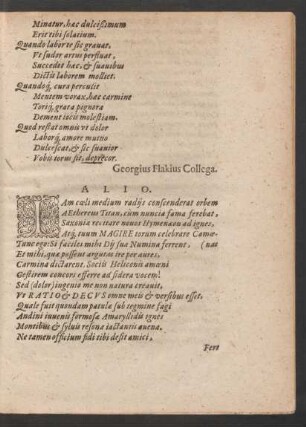 Minatur, hac dulcißimum
Erit tibi solatium.
Quando labor te sic grauat,
Vt sudor artus perfluat,
Succedet hæc, & suauibus
Dictis laborem molliet.
Quandoq; cura perculit
Mentem vorax, hæc carmine
Torıq; grata pignora
Dement tocis molestiam.
Quod restat omnis vt dolor
Laborq; amore mutuo
Dulcescat, & sic suauior
Vobis torus sit, deprecor.
Georgius Flakius Collega.
ALIO.
IAm cœli medium radijs conscenderat orbem
AEthereus Titan, cum nuncia fama ferebat,
Saxonia recitare nouos Hymenæon ad ignes,
Atq; tuum MAGIRE torum celebrare Camœ-
Tunc ego: Si faciles mihi Dij sua Numina ferrent, (nas
Et mihi, qua possunt argutas ire per aures,
Carmina dictarent, Socijs Heliconis amœni
Gestirem concors efferre ad sidera vocem!
Sed (dolor) ingenio me non natura creauit,
Vt RATIO & DECVS omne meis & versibus esset.
Quale fuit quondam patula sub tegmine fagi
Audini iuuenis formosæ Amaryllidis ignes
Montibus & syluis resona iactantis auena.
Ne tamen officium fidi tibi desit amici,
Fert